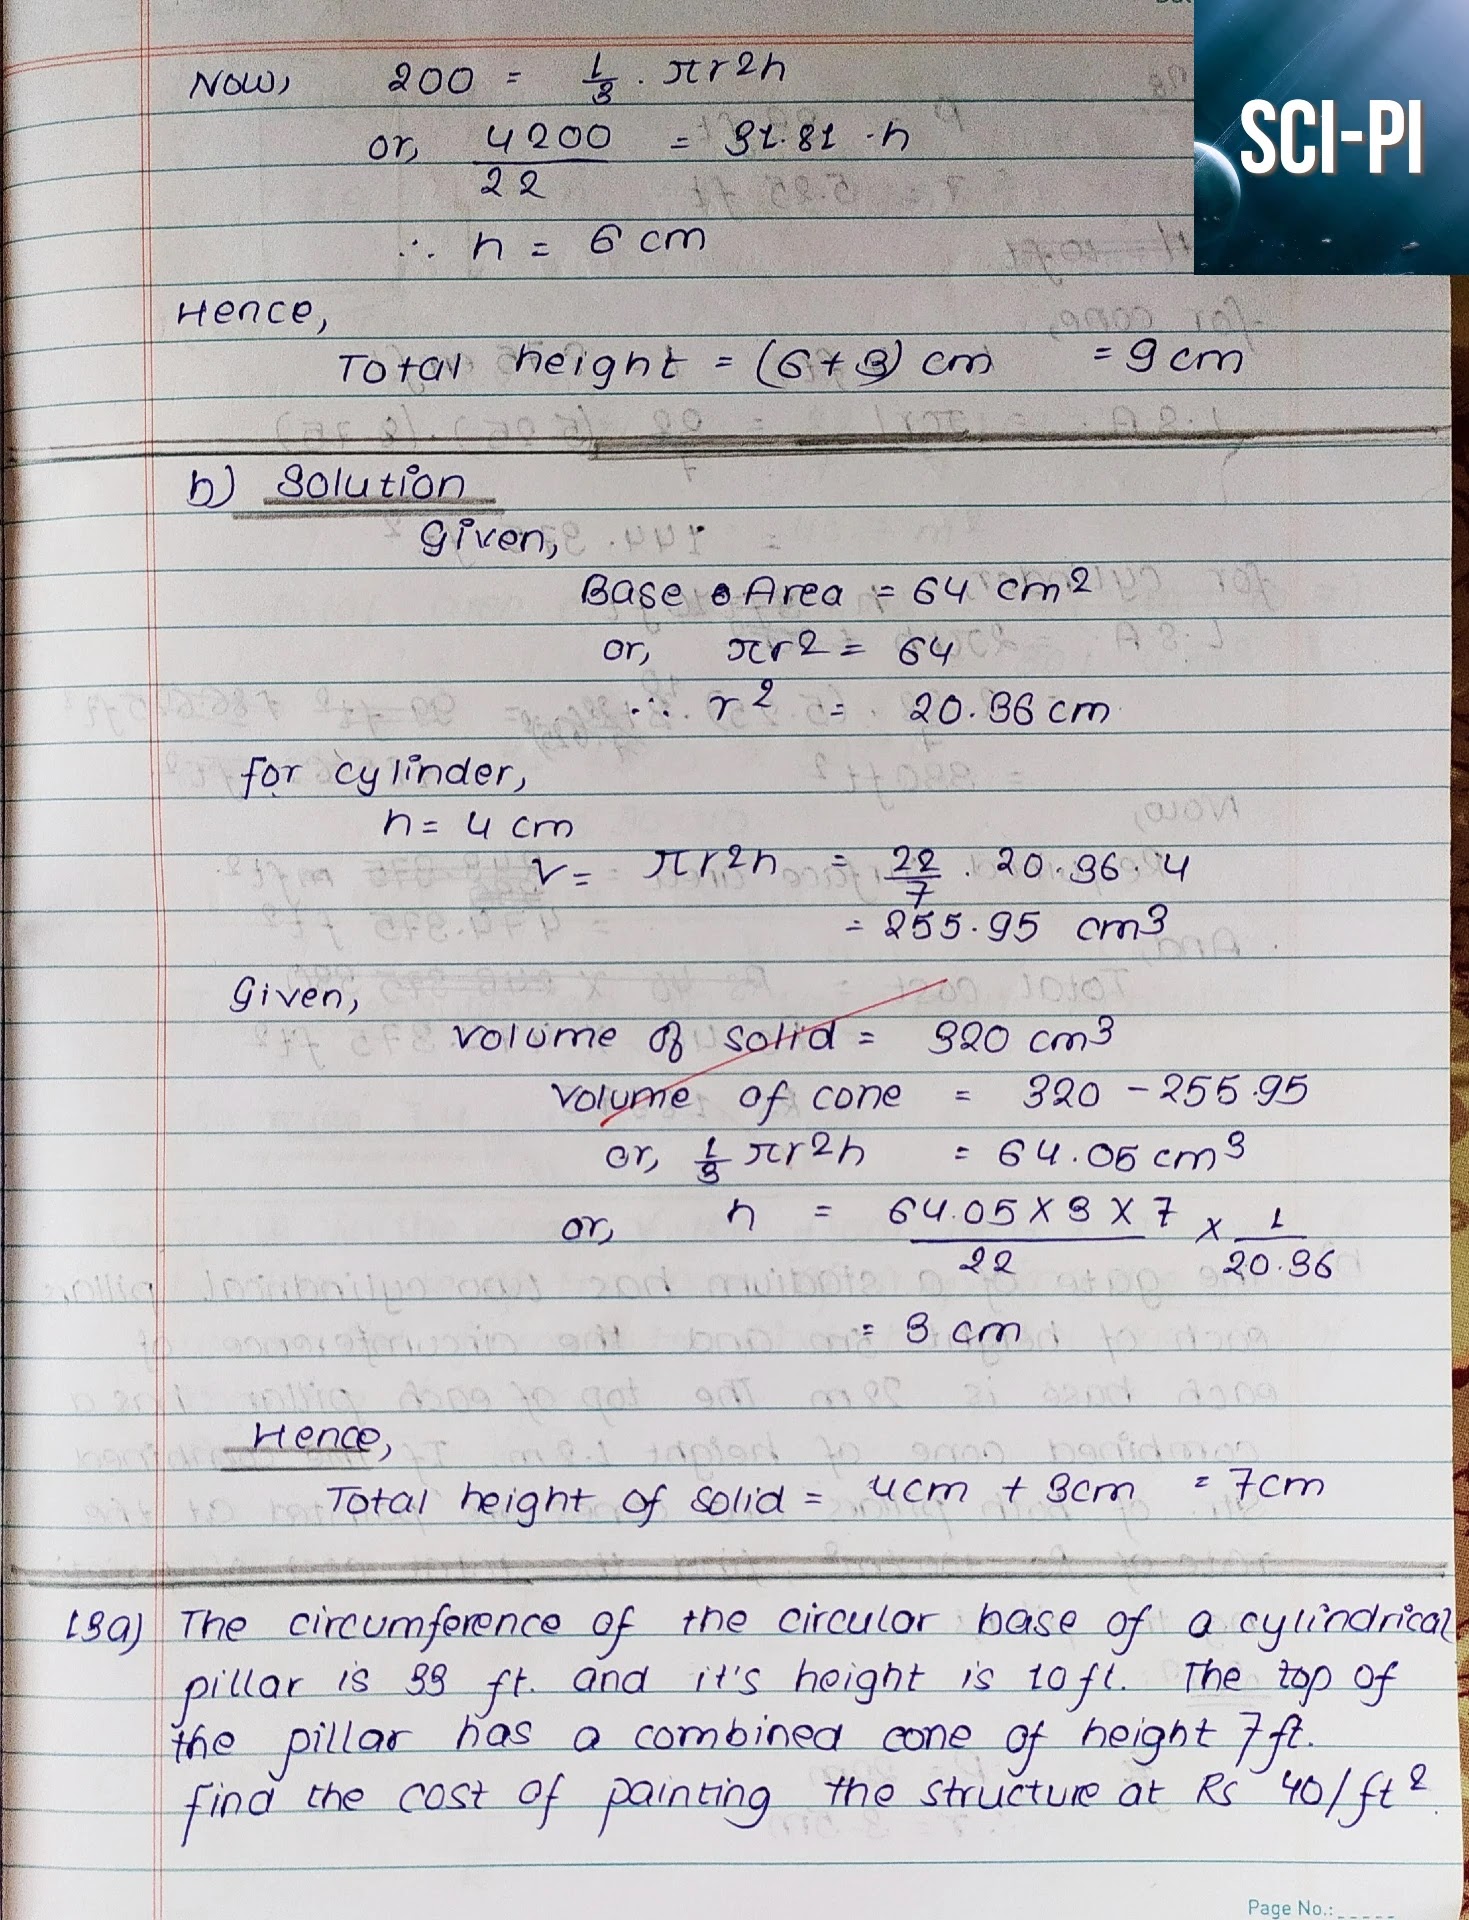 SCI-PI
Now, 200 = 1/3 . πr2h
or, 4200/22 = 31.81 . h
∴ h = 6 cm
Hence,
Total height = (6+3) cm = 9 cm
b) Solution
Given,
Base Area = 64 cm2
or, πr2 = 64
∴ r2 = 20.36 cm
for cylinder,
h = 4 cm
V = πr2h = 22/7 . 20.36 . 4
= 255.95 cm3
Given,
Volume of solid = 320 cm3
Volume of cone = 320 - 255.95
or, 1/3 πr2h = 64.05 cm3
or, h = 64.05 X 3 X 7/22 X 1/20.36
= 3 cm
Hence,
Total height of solid = 4cm + 3cm = 7cm
13a) The circumference of the circular base of a cylindrical
pillar is 33 ft. and it's height is 10ft. The top of
the pillar has a combined cone of height 7ft.
find the cost of painting the structure at Rs 40/ft2.
Page No.: